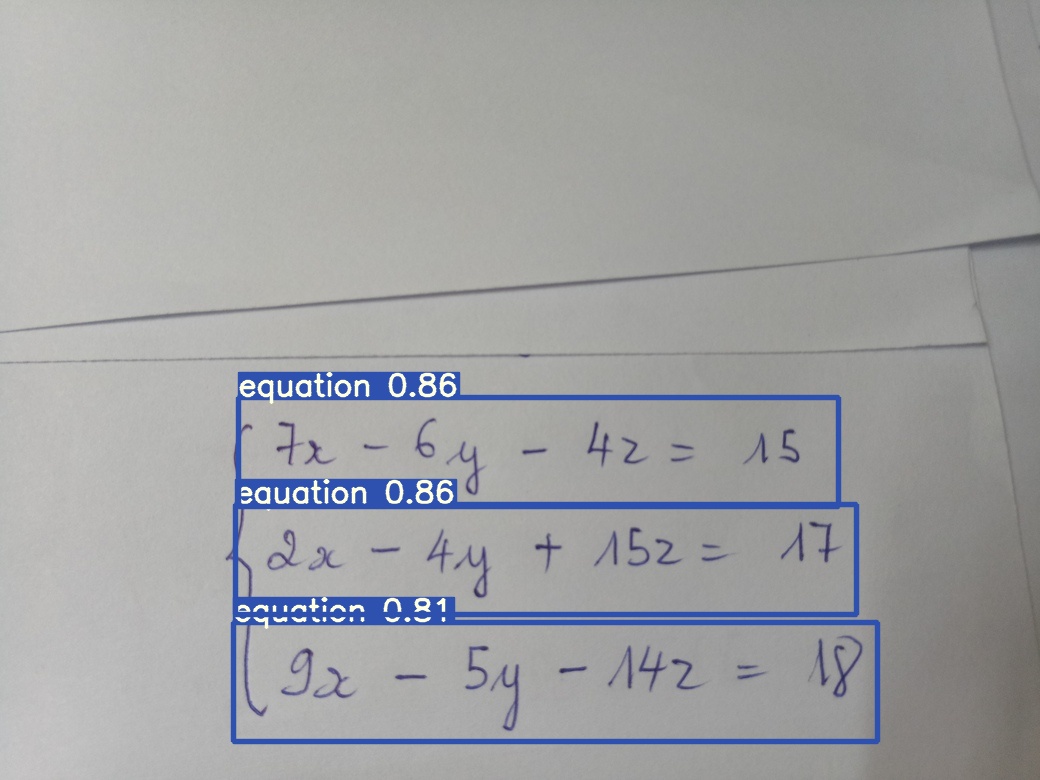 equation 0.86
7x - 6y - 4z = 15
equation 0.86
2x - 4y + 15z = 17
equation 0.81
9x - 5y - 14z = 18